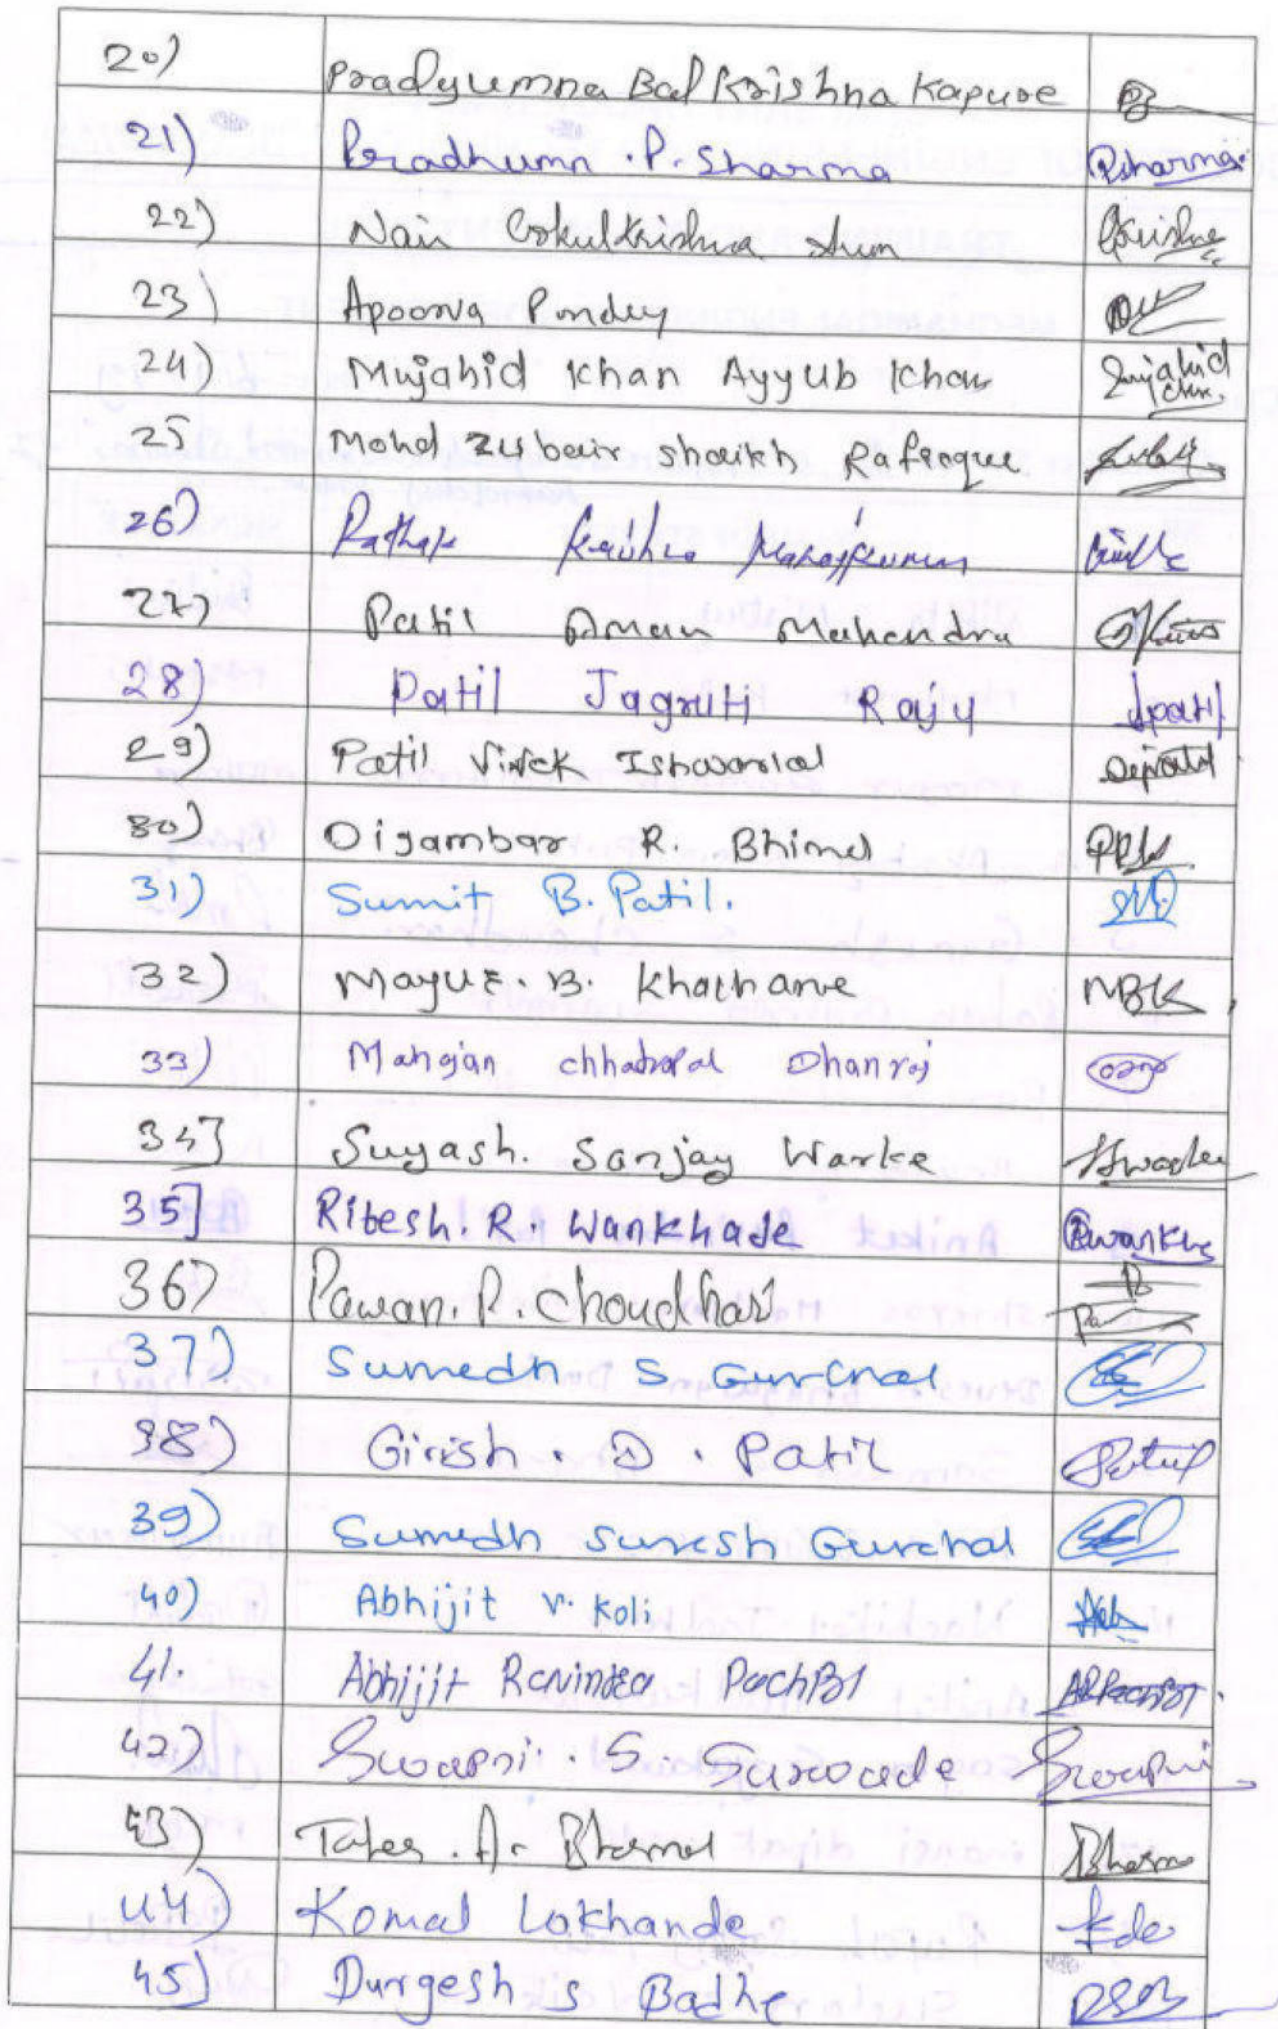 20) Pradyumna Balkrishna Kapure
21) Pradhumn . P. Sharma Psharma
22) Nair Gokulkrishna Arun
23) Apoorva Pandey
24) Mujahid Khan Ayyub Khan Mujahid Khan
25 Mohd zubair shaikh Rafeeque
26) Pathak
27) Patil Aman Mahendra
28) Patil Jagruti Raju Jpatil
29) Patil Vivek Ishwarlal
30) Digambar R. Bhimel
31) Sumit B. Patil.
32) Mayur. B. Khachane MBK
33) Mahajan chhatrapal Dhanraj
34] Suyash. Sanjay Warke
35] Ritesh. R. Wankhade
36) Pawan. R. Choudhari
37) Sumedh S Gurchal
38) Girish . D . Patil
39) Sumedh Suresh Gurchal
40) Abhijit V. Koli
41. Abhijit Ravindra PachPol
42) S. Sarwade
43) A.
44) Komal Lokhande
45) Durgesh S Badhe DSB